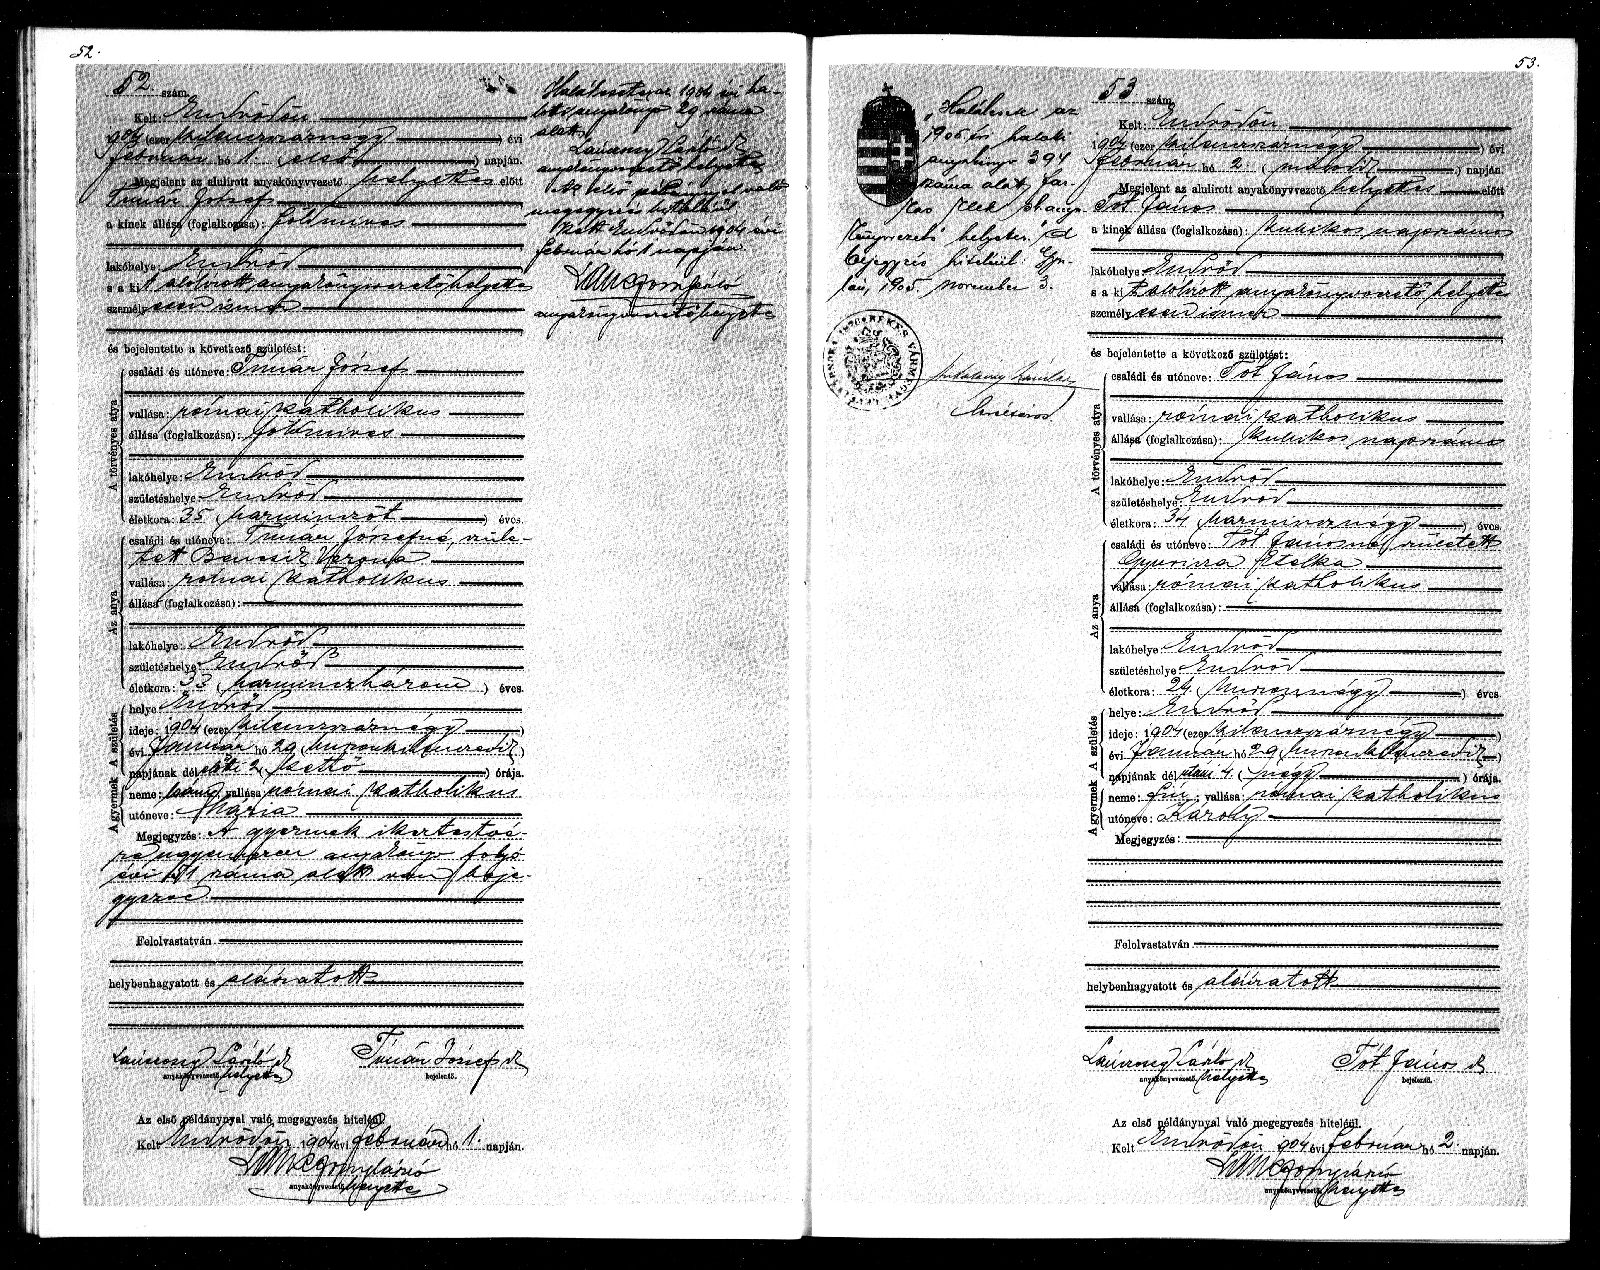 52.
52. szám.
Kelt: Endrődön
1904 (ezer kilenczszáznégy) évi
február hó 1. (első) napján.
Megjelent az alulirott anyakönyvvezető helyettes előtt
Tímár József
a kinek állása (foglalkozása): földmives
lakóhelye: Endrőd
s a kit alulirott anyakönyvvezető helyettes
személyesen ismer
és bejelentette a következő születést:
A törvényes atya
családi és utóneve: Tímár József
vallása: római katholikus
állása (foglalkozása): földmives
lakóhelye: Endrőd
születéshelye: Endrőd
életkora: 35 (harminczöt) éves.
Az anya
családi és utóneve: Tímár Józsefné, szüle-
tett Bencsik Verona
vallása: római katholikus
állása (foglalkozása):
lakóhelye: Endrőd
születéshelye: Endrőd
életkora: 33 (harminczhárom) éves.
A születés
helye: Endrőd
ideje: 1904 (ezer kilenczszáznégy)
évi január hó 29 (huszonkilenczedik)
napjának délelőtti 2 (kettő) órája.
A gyermek
neme: leány vallása: római katholikus
utóneve: Mária
Megjegyzés: A gyermek ikertestvé-
re ugyanezen anyakönyv folyó
évi 51 száma alatt van beje-
gyezve.
Felolvastatván
helybenhagyatott és aláíratott
László sk
anyakönyvvezető helyettes
Tímár József sk
bejelentő.
Az első példánynyal való megegyezés hiteléül.
Kelt Endrődön 1904 évi február hó 1. napján.
László
anyakönyvvezető helyettes
Halálesetének 1904 évi ha-
lotti anyakönyv 29 száma
alatt
László sk
anyakönyvvezető helyettes
Az első példánynyal való
megegyezés hiteléül
Kelt Endrődön 1904 évi
február hó 1 napján
László
anyakönyvvezető helyettes
53.
„Halálesete az
1905 év halotti
anyakönyv 394
száma alatt. Far-
kas Elek s. k. anya-
könyvvezető helyettes." A
bejegyzés hiteléül: Gyu-
lán, 1905. november 3.
BÉKÉS VÁRMEGYE
53 szám.
Kelt: Endrődön
1904 (ezer kilenczszáznégy) évi
február hó 2. (második) napján.
Megjelent az alulirott anyakönyvvezető helyettes előtt
Tót János
a kinek állása (foglalkozása): kubikos napszámos
lakóhelye: Endrőd
s a kit alulirott anyakönyvvezető helyettes
személyesen ismer
és bejelentette a következő születést:
A törvényes atya
családi és utóneve: Tót János
vallása: római katholikus
állása (foglalkozása): kubikos napszámos
lakóhelye: Endrőd
születéshelye: Endrőd
életkora: 34 (harmincznégy) éves.
Az anya
családi és utóneve: Tót Jánosné, született
Gyuricza Etelka
vallása: római katholikus
állása (foglalkozása):
lakóhelye: Endrőd
születéshelye: Endrőd
életkora: 24. (huszonnégy) éves.
A születés
helye: Endrőd
ideje: 1904 (ezer kilenczszáznégy)
évi január hó 29 (huszonkilenczedik)
napjának délutáni 4. (négy) órája.
A gyermek
neme: fiú; vallása: római katholikus
utóneve: Károly
Megjegyzés:
Felolvastatván
helybenhagyatott és aláíratott
László sk
anyakönyvvezető helyettes
Tót János sk
bejelentő.
Az első példánynyal való megegyezés hiteléül.
Kelt Endrődön 1904 évi február hó 2. napján.
László
anyakönyvvezető helyettes